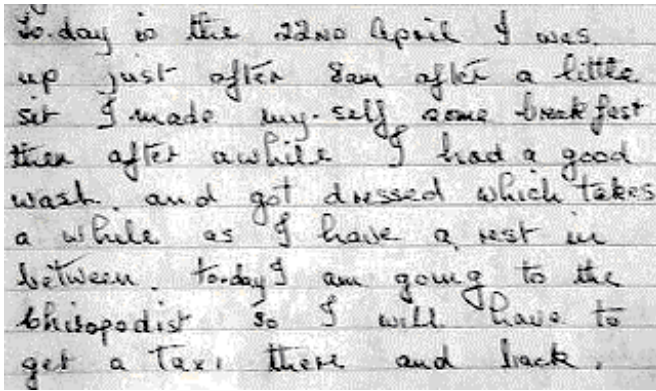 to-day is the 22ND April I was
up just after 8am after a little
sit I made my-self some breakfast
then after awhile I had a good
wash. and got dressed which takes
a while as I have a rest in
between. to-day I am going to the
Chiropodist so I will have to
get a Taxi there and back.